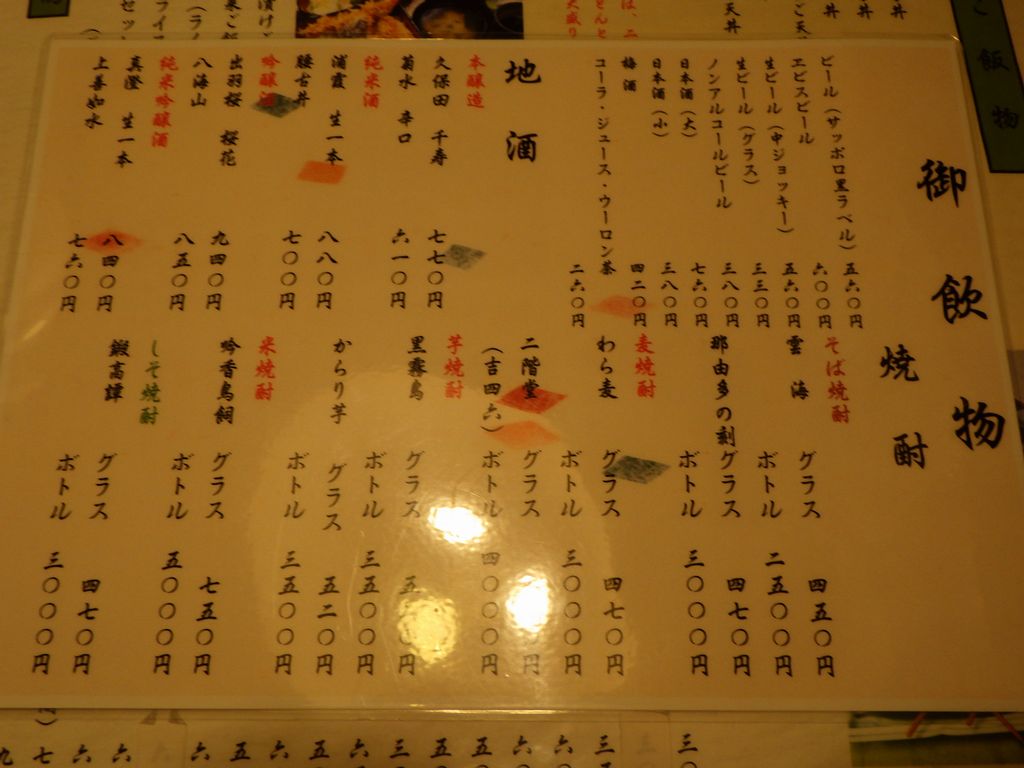 御飲物
ビール（サッポロ黒ラベル） 五六〇円
エビスビール 六〇〇円
生ビール（中ジョッキー） 五六〇円
生ビール（グラス） 三三〇円
ノンアルコールビール 三八〇円
日本酒（大） 七六〇円
日本酒（小） 三八〇円
梅酒 四二〇円
コーラ・ジュース・ウーロン茶 二六〇円
地酒
本醸造
久保田 千寿 七七〇円
菊水 辛口 六一〇円
純米酒
浦霞 生一本 八八〇円
腰古井 七〇〇円
吟醸酒
出羽桜 桜花 九四〇円
八海山 八五〇円
純米吟醸酒
真澄 生一本 八四〇円
上善如水 七六〇円
焼酎
そば焼酎
雲海 グラス 四五〇円
ボトル 二五〇〇円
那由多の刻 グラス 四七〇円
ボトル 三〇〇〇円
麦焼酎
わら麦 グラス 四七〇円
ボトル 三〇〇〇円
二階堂 グラス
（吉四六） ボトル 四〇〇〇円
芋焼酎
黒霧島 グラス
ボトル 三五〇〇円
からり芋 グラス 五二〇円
ボトル 三五〇〇円
米焼酎
吟香鳥飼 グラス 七五〇円
ボトル 五〇〇〇円
しそ焼酎
鍛高譚 グラス 四七〇円
ボトル 三〇〇〇円
ご飯物